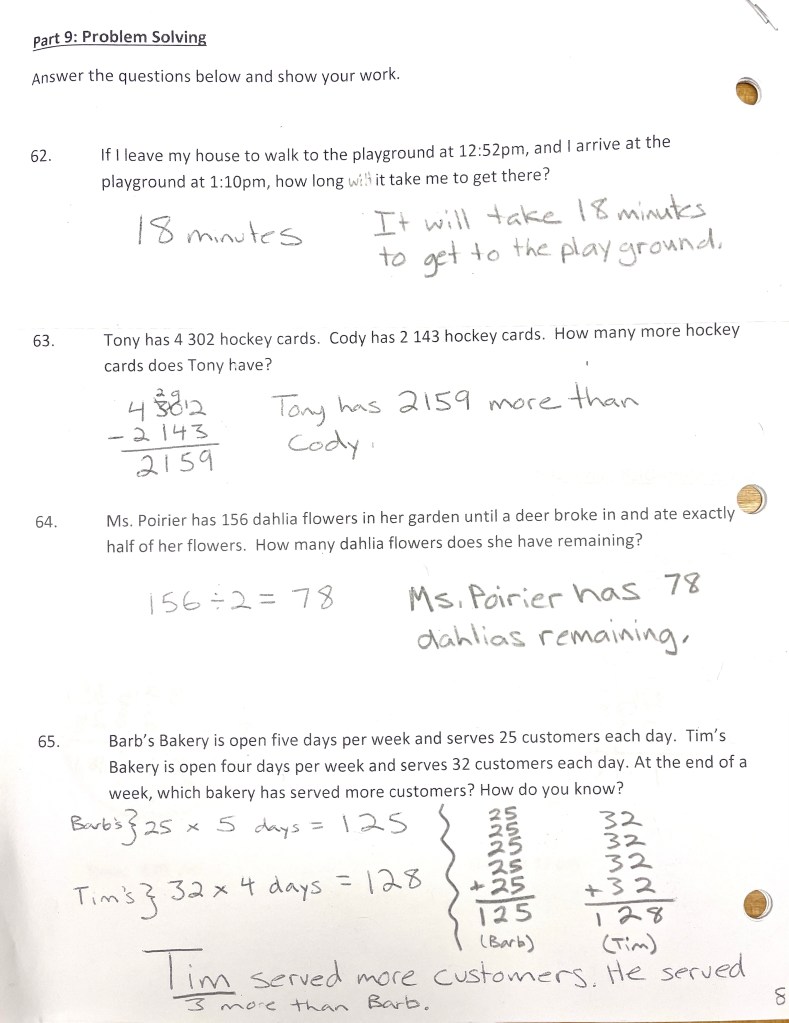 Part 9: Problem Solving
Answer the questions below and show your work.
62. If I leave my house to walk to the playground at 12:52pm, and I arrive at the
playground at 1:10pm, how long will it take me to get there?
18 minutes
It will take 18 minutes
to get to the playground.
63. Tony has 4 302 hockey cards. Cody has 2 143 hockey cards. How many more hockey
cards does Tony have?
2 9
4 30'2
- 2 143
2159
Tony has 2159 more than
Cody.
64. Ms. Poirier has 156 dahlia flowers in her garden until a deer broke in and ate exactly
half of her flowers. How many dahlia flowers does she have remaining?
156 ÷ 2 = 78
Ms. Poirier has 78
dahlias remaining.
65. Barb's Bakery is open five days per week and serves 25 customers each day. Tim's
Bakery is open four days per week and serves 32 customers each day. At the end of a
week, which bakery has served more customers? How do you know?
Barb's } 25 x 5 days = 125
Tim's } 32 x 4 days = 128
25
25
25
25
+ 25
125
(Barb)
32
32
32
+ 32
128
(Tim)
Tim served more customers. He served
3 more than Barb.
8